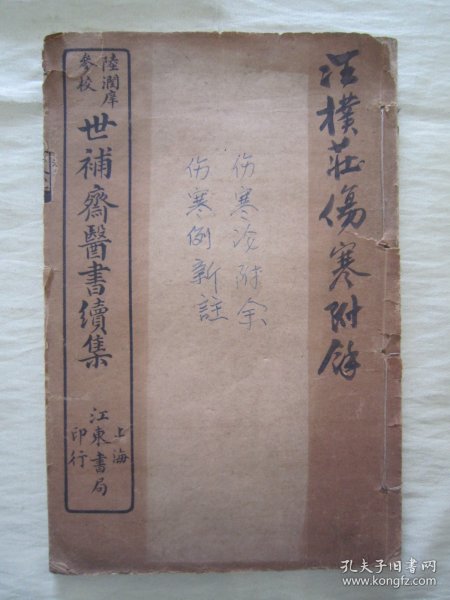 汪樸莊傷寒附餘
伤寒论附余
伤寒例新註
陸潤庠
參校
世補齋醫書續集
上海
江東書局
印行
孔夫子旧书网
www.kongfz.com